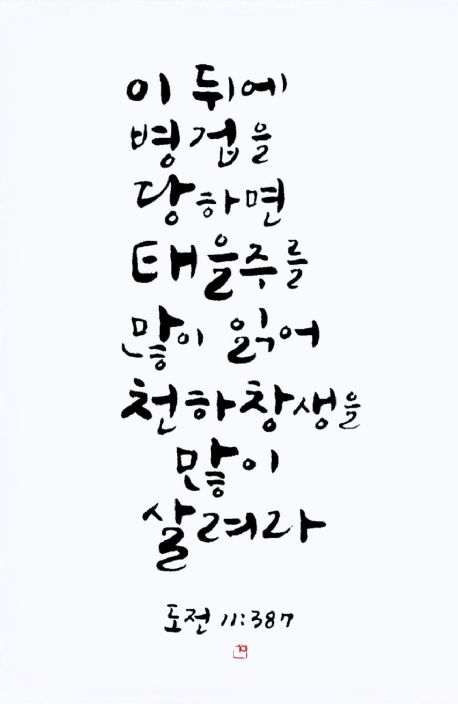 이 뒤에
병겁을
당하면
태을주를
많이 읽어
천하창생을
많이
살려라
도전 11:387